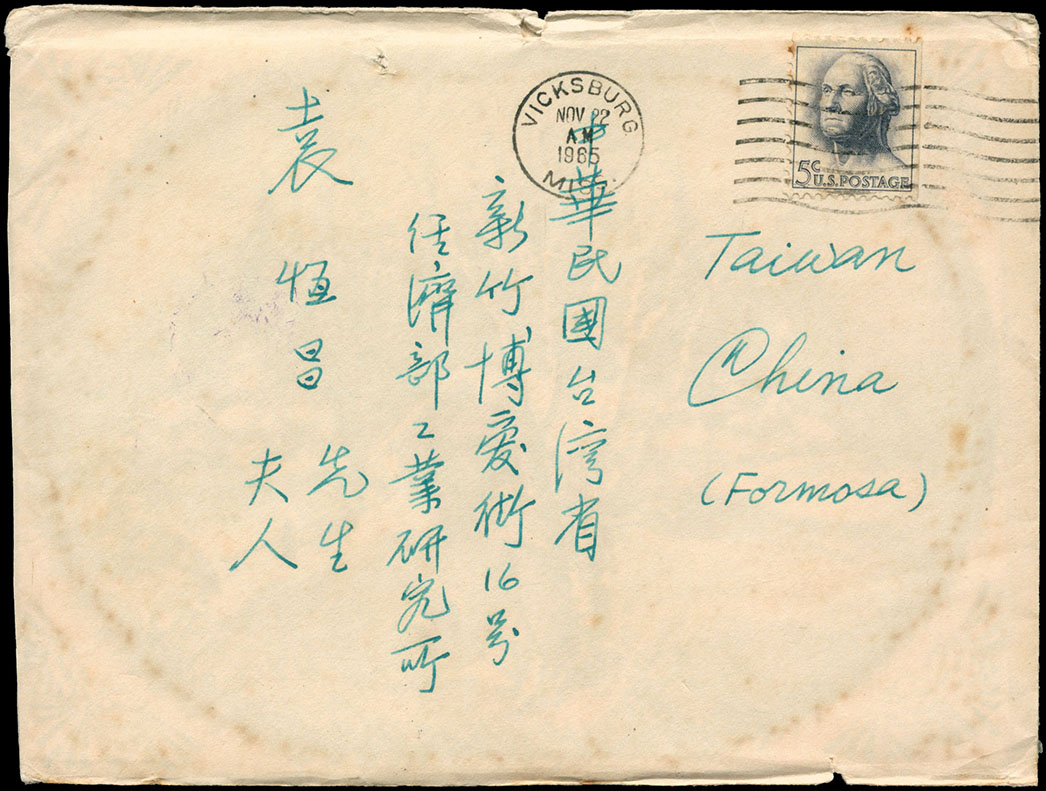 VICKSBURG
NOV 22
AM
1965
5c U.S. POSTAGE
Taiwan
China
(Formosa)
中華民國台湾省
新竹博愛街16号
经濟部工業研究所
袁恒昌 先生
夫人